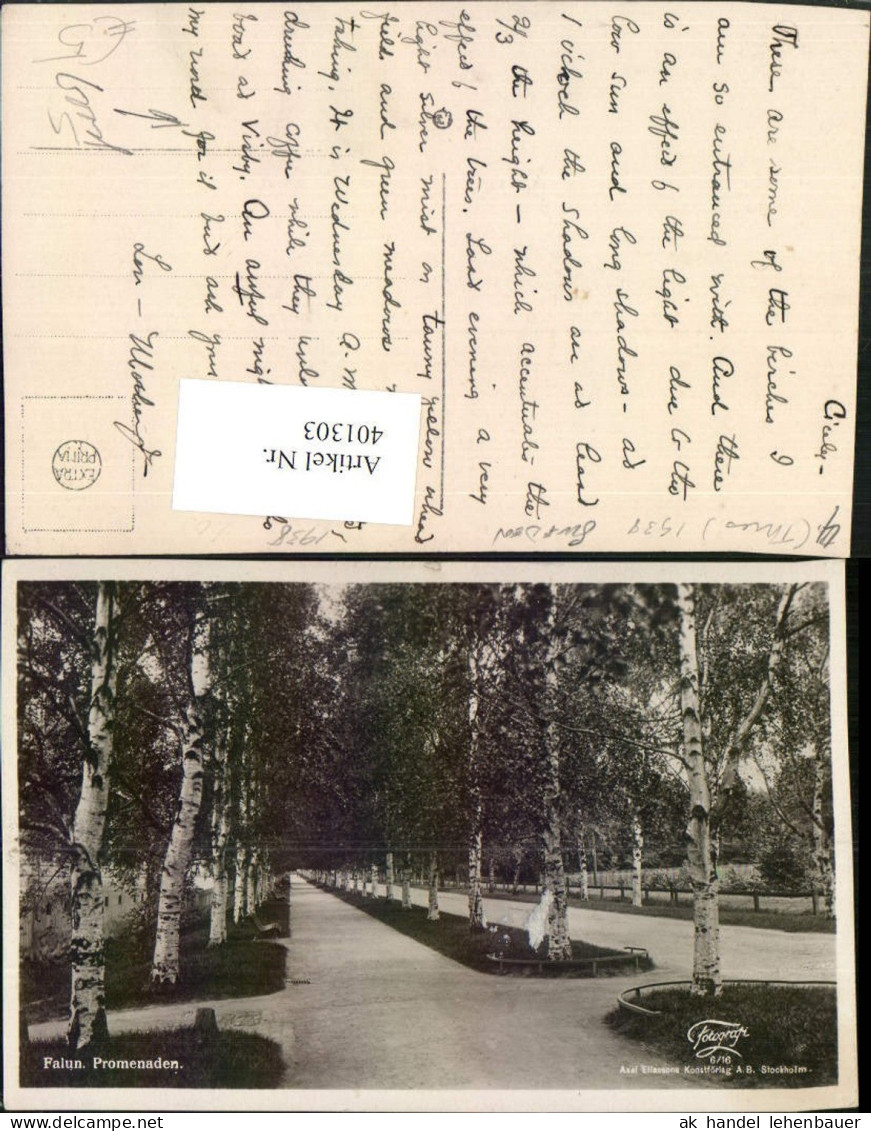 Cicely —
These are some of the birches I
am so entranced with. And there
is an effect of the light due to the
low sun and long shadows — at
1 o'clock the shadows are at least
2/3 the height — which accentuates the
effect of the trees. Last evening a very
light silver mist on tawny yellow wheat
fields and green meadows
taking. It is Wednesday A.M.
drinking coffee while they
boat at Visby. An awful
my word for it but ask
Lou —
4 (Three) 1934
Sweden
1938
EXTRA
PRIMA
Artikel Nr.
401303
Falun. Promenaden.
Fotografi
6/16
Axel Eliassons Konstförlag A.B. Stockholm.
ak handel lehenbauer